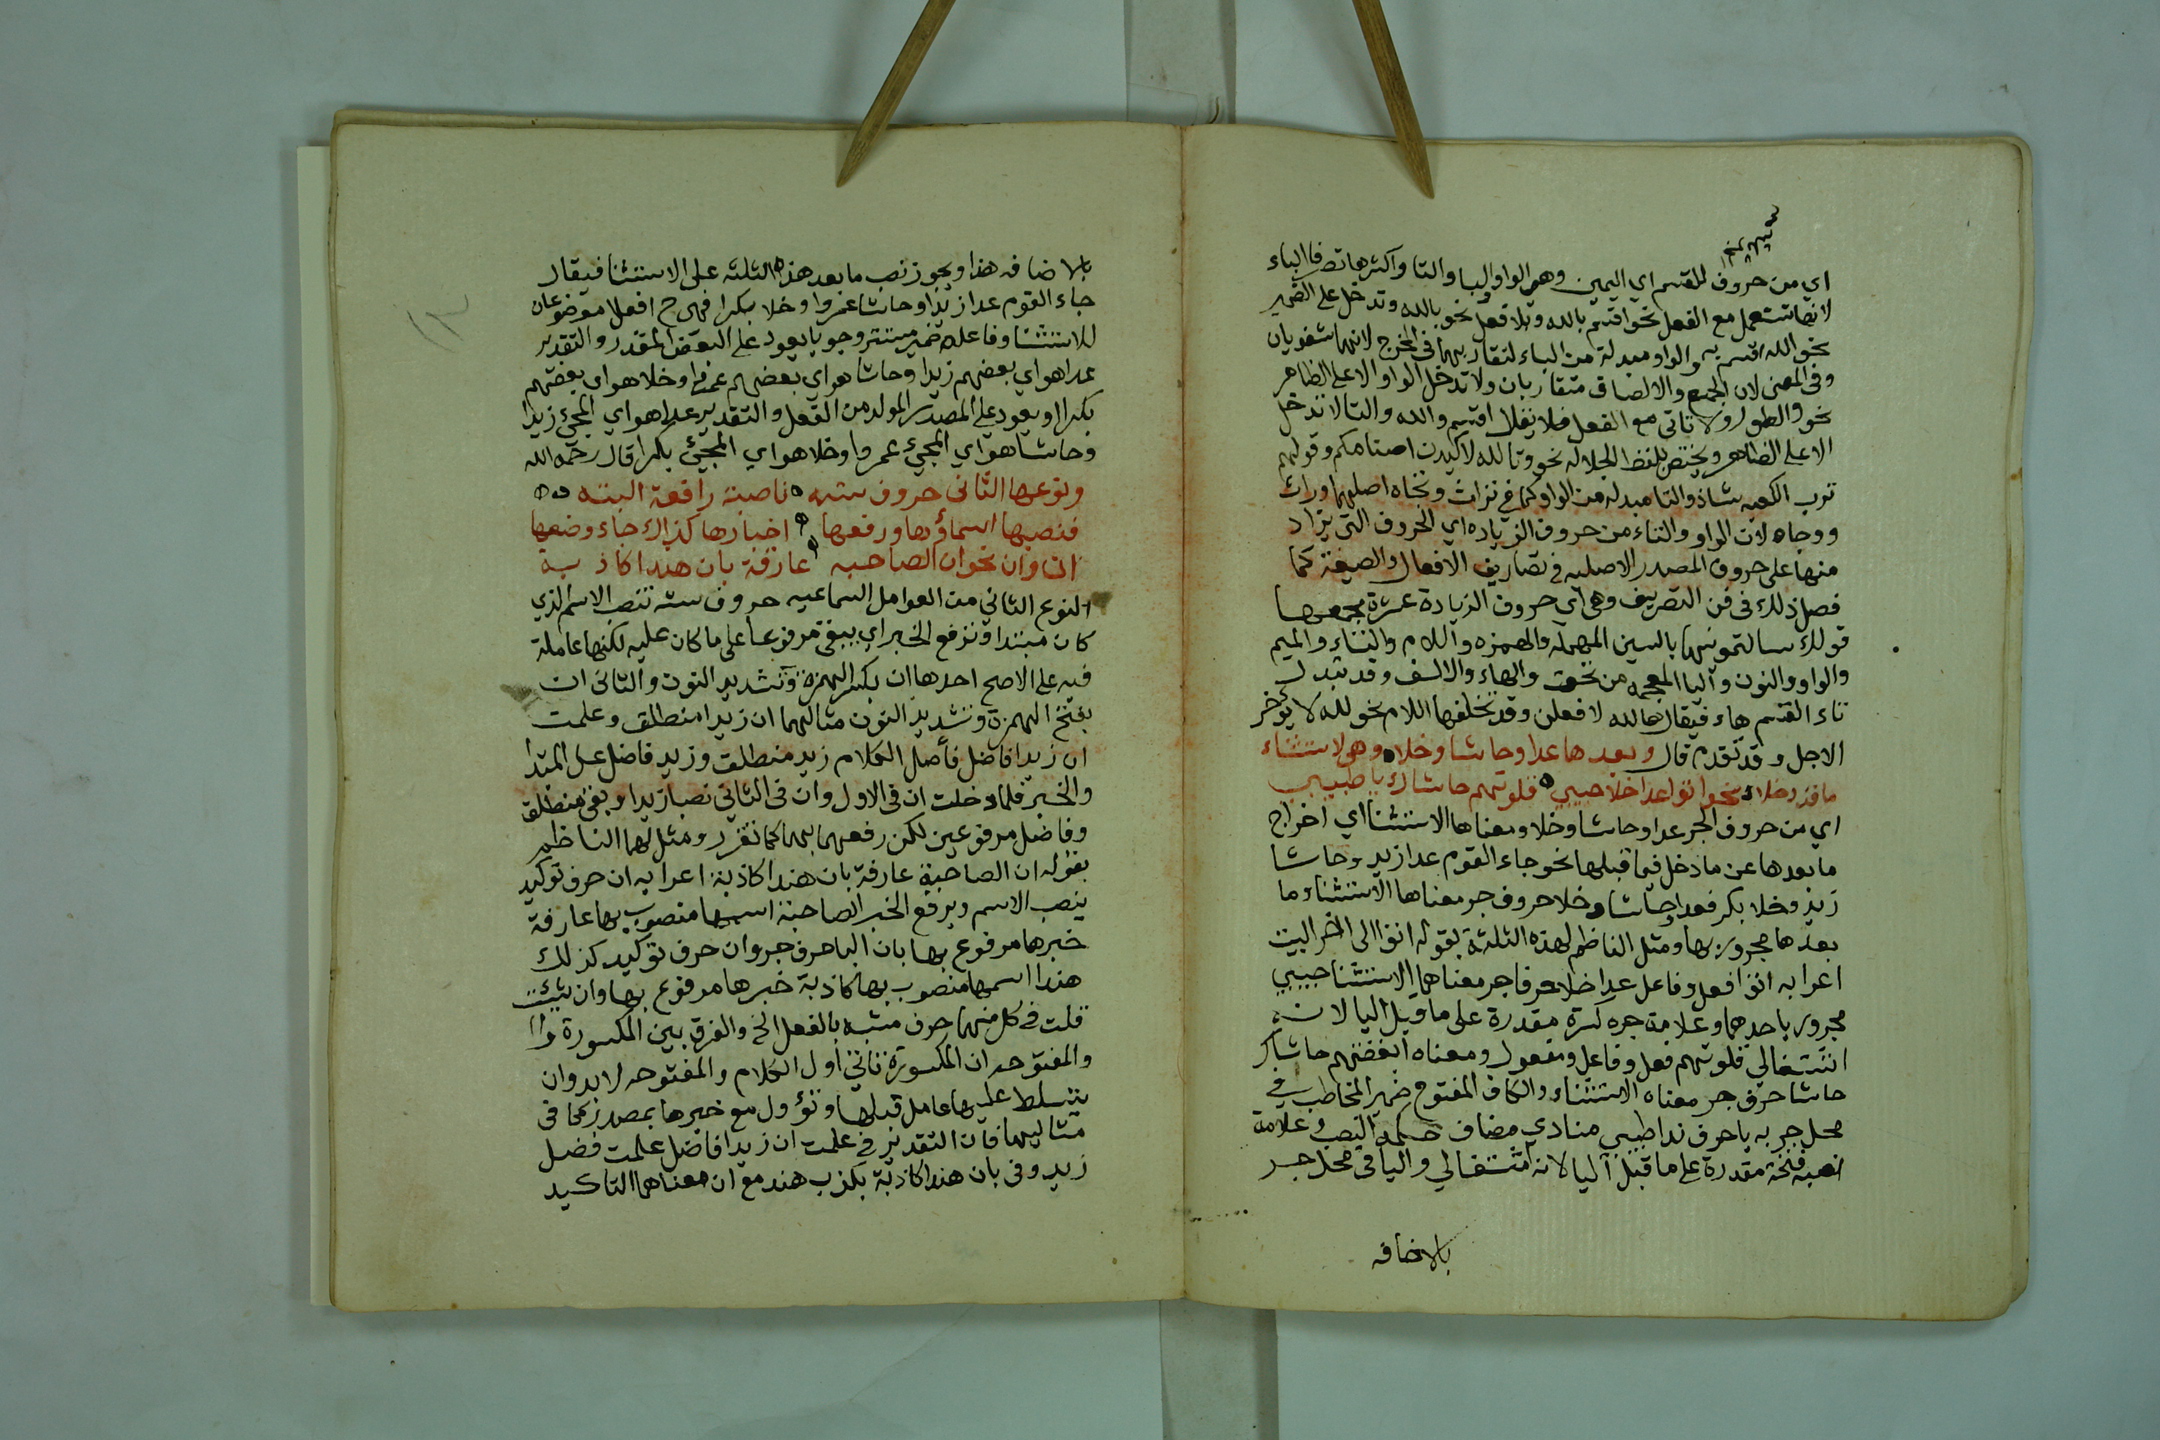 اي من حروف للقسم اي اليمين وهو الواو والبا والتا واكثرها تصرفا الباء
لانها تستعمل مع الفعل نحو اقسم بالله وبلا فعل نحو بالله وتدخل على الضمير
نحو الله اقسم به والواو مبدلة من الباء لتقاربهما في المخرج لانهما شفويان
وفي المعنى لان الجمع والالصاق متقاربان ولا تدخل الواو الا على الظاهر
نحو والطور ولا تاتي مع الفعل فلا يقال اقسم والله والتا لا تدخل
الا على الظاهر ويختص بلفظ الجلاله نحو وتا لله لاكيدن اصنامكم وقولهم
ترب الكعبه شاذ والتا مبدله من الواو كما في تراث وتجاه اصلهما وراث
ووجاه لان الواو والتاء من حروف الزياده اي الحروف التي يزاد
منها على حروف المصدر الاصليه في تصاريف الافعال والصيغة كما
فصل ذلك في فن التصريف وهي اي حروف الزيادة عشرة يجمعها
قولك سالتمونيها بالسين المهملة والهمزه واللام والتاء والميم
والواو والنون واليا المعجمه من تحت والهاء والالف وقد تبدل
تاء القسم هاء فيقال ها لله لافعلن وقد تخلفها اللام نحو لله لا يؤخر
الاجل وقد تقدم قال وبعدها عدا وحاشا وخلا وهي لاستثناء
ما قد دخلا نحو اتوا عدا خلا حبيبي قلوتهم حاشاك يا طبيبي
اي من حروف الجر عدا وحاشا وخلا ومعناها الاستثنا اي اخراج
ما بعدها عن ما دخل فيما قبلها نحو جاء القوم عدا زيد وحاشا
زيد وخلا بكر فعدا وحاشا وخلا حروف جر معناها الاستثناء وما
بعدها مجرور بها ومثل الناظم لهذه الثلثة بقوله اتوا الى اخر البيت
اعرابه اتوا فعل وفاعل عدا خلا حرفا جر معناهما الاستثنا حبيبي
مجرور باحدهما وعلامة جره كسرة مقدرة على ما قبل اليا لانه
اشتغالي قلوتهم فعل وفاعل ومفعول ومعناه ابغضتهم حاشاك
حاشا حرف جر معناه الاستثناء والكاف المفتوح ضمير المخاطب في
محل جر به يا حرف ندا طبيبي منادي مضاف حكمه النصب وعلامة
نصبه فتحة مقدرة على ما قبل اليا لانه اشتغالي واليا في محل جر
بالاضافه
بالاضافه هذا ويجوز نصب ما بعد هذه الثلثه على الاستثنا فيقال
جاء القوم عدا زيدا وحاشا عمروا وخلا بكرا فهي ح افعلا موضوعان
للاستثنا وفاعله ضمير مستتر وجوبا يعود على البعض المقدر والتقدير
عدا هو اي بعضهم زيدا وحاشا هو اي بعضهم عمرا وخلا هو اي بعضهم
بكرا او يعود على المصدر المولد من الفعل والتقدير عدا هو اي المجيء زيدا
وحاشا هو اي المجيء عمروا وخلا هو اي المجيئ بكرا قال رحمه الله
ونوعها الثاني حروف سته ناصبة رافعة البته
فنصبها اسماؤها ورفعها اخبارها كذاك جاء وضعها
ان وان نحو ان الصاحبه عارفة بان هندا كاذبة
النوع الثاني من العوامل السماعيه حروف سته تنصب الاسم الذي
كان مبتدا وترفع الخبر اي يبقى مرفوعا على ما كان عليه لكنها عاملة
فيه على الاصح احدها ان بكسر الهمزة وتشديد النون والثاني ان
بفتح الهمزة وتشديد النون مثالهما ان زيدا منطلق وعلمت
ان زيدا فاضل فاصل الكلام زيد منطلق وزيد فاضل على المبتدا
والخبر فلما دخلت ان في الاول وان في الثاني نصبا زيدا وبقي منطلق
وفاضل مرفوعين لكن رفعهما بهما كما تقرر ومثل لهما الناظم
بقوله ان الصاحبة عارفة بان هندا كاذبة اعرابه ان حرف توكيد
ينصب الاسم ويرفع الخبر الصاحبة اسمها منصوب بها عارفة
خبرها مرفوع بها بان البا حرف جر وان حرف توكيد كذلك
هندا اسمها منصوب بها كاذبة خبرها مرفوع بها وان شئت
قلت في كل منهما حرف مشبه بالفعل الخ والفرق بين المكسورة
والمفتوحه ان المكسورة تاتي اول الكلام والمفتوحه لا بد وان
يتسلط عليها عامل قبلها وتؤول مع خبرها بمصدر كما في
مثاليهما فان التقدير في علمت ان زيدا فاضل علمت فضل
زيد وفي بان هندا كاذبة بكذب هند مع ان معناهما التاكيد